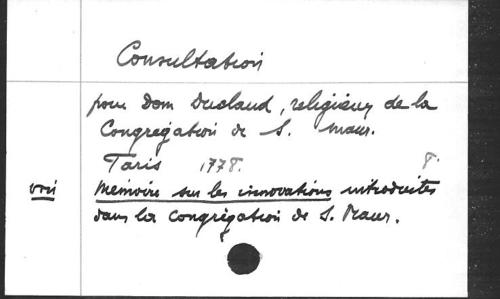 Consultation
pour Dom Duclaud, religieux de la
Congrégation de S. Maur.
Paris 1778. 8.
voir Mémoire sur les innovations introduites
dans la congrégation de S. Maur.